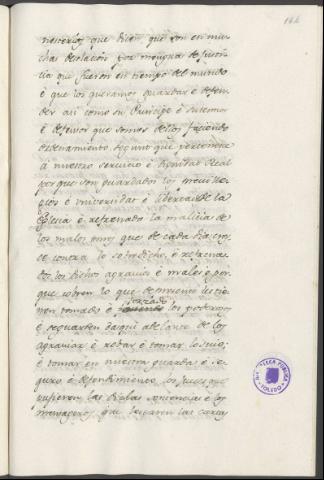 144
menesterlos que dicen que son en mu-
chas desolacion por mengua de justi-
cia que fueron en tiempo del mundo
é que los queramos guardar é defen-
der asi como su Principe é sucesor
é defensor que somos dellos faciendo
ordenamiento segunt que pertenece
á nuestro servicio é dignidat Real
porque son guardados los previle-
gios é universidat é libertad de la
Eglesia é refrenada la malicia de
los malos omes que de cada dia cre-
ce contra lo sobredicho, é refrena-
dos los dichos agravios é males é por-
que cobren lo que de nuevo les tie-
nen tomado é forzado los poderosos
é se guarden daqui adelante de los
agraviar é robar é tomar lo suyo;
é tomar en nuestra guarda é se-
guro é defendimiento los Jueces que
pusieren las dichas sentencias é los
mensageros que levaren las cartas
BIBLIOTECA PUBLICA
TOLEDO